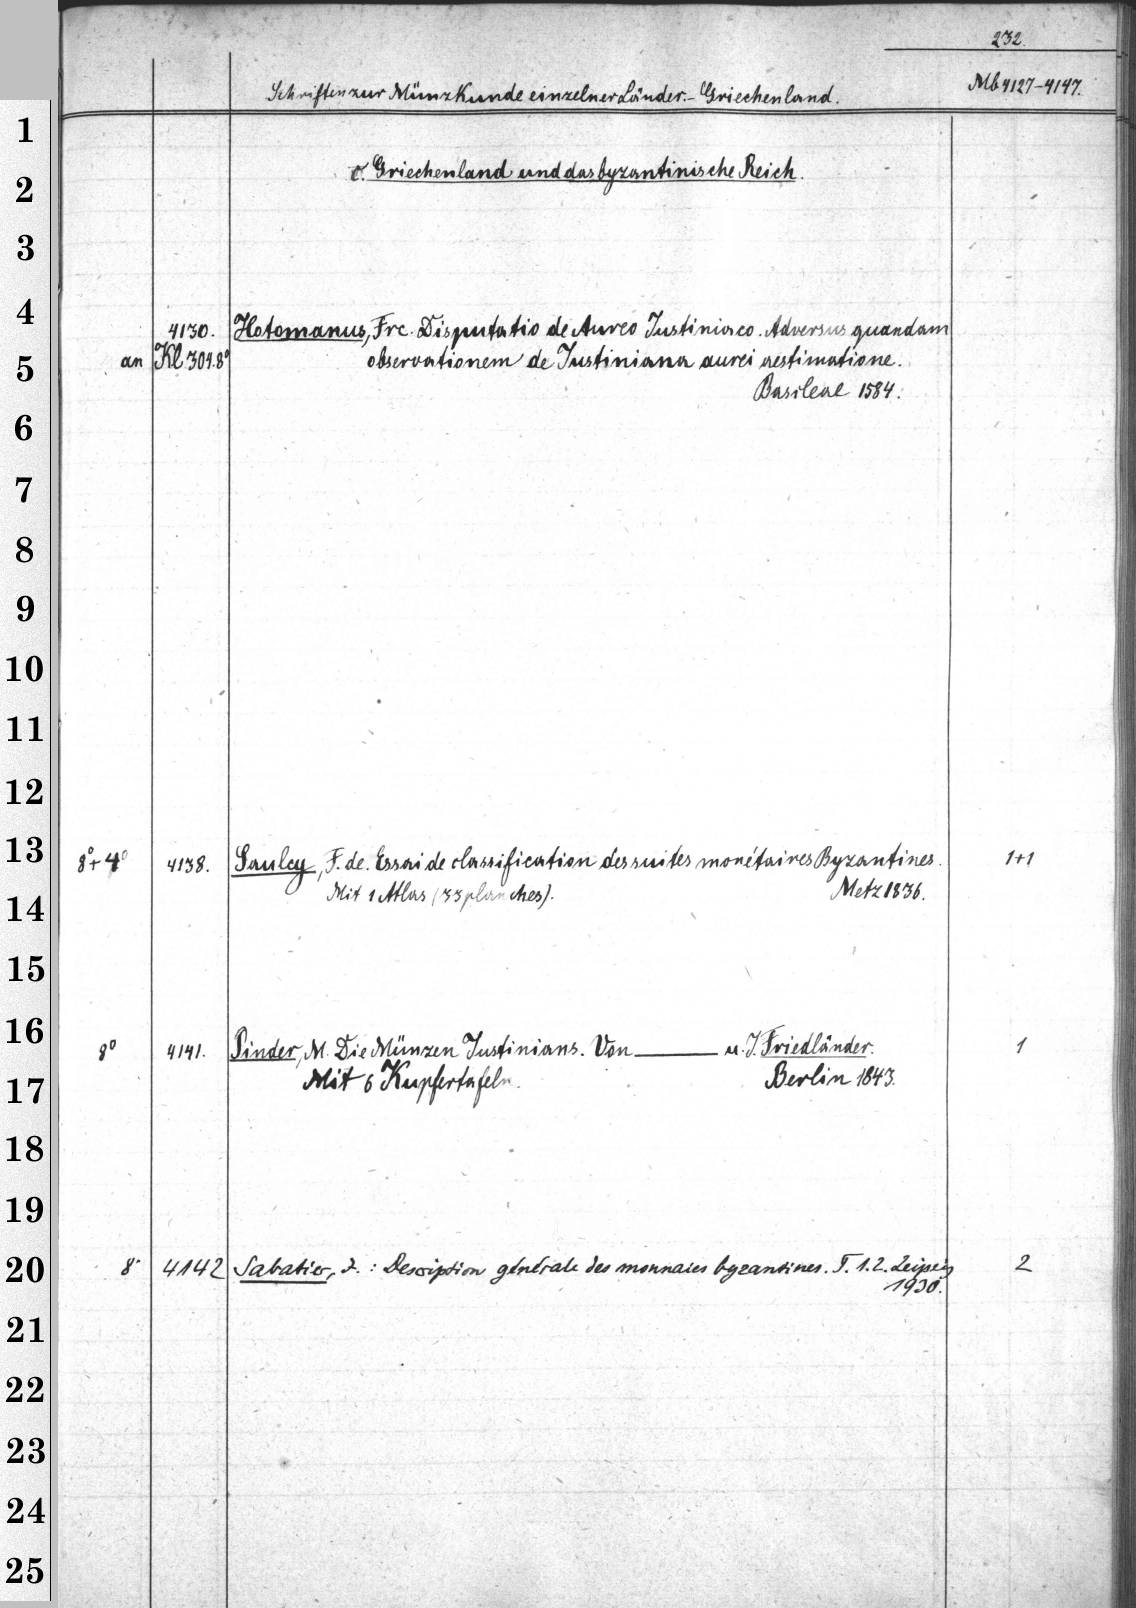 232.
Schriften zur Münzkunde einzelner Länder. - Griechenland. Mb 4127-4147.
1
c. Griechenland und das byzantinische Reich.
2
3
4
4130. Hotomanus, Frc. Disputatio de Aureo Iustiniaco. Adversus quandam
5 an Kl. 309.8° observationem de Iustiniana aurei aestimatione.
Basileae 1584.
6
7
8
9
10
11
12
13 8°+4° 4138. Saulcy, F. de. Essai de classification des suites monétaires Byzantines. 1+1
14 Mit 1 Atlas (33 planches). Metz 1836.
15
16 8° 4141. Pinder, M. Die Münzen Iustinians. Von ——— u. J. Friedländer. 1
17 Mit 6 Kupfertafeln. Berlin 1843.
18
19
20 8° 4142 Sabatier, J. : Description générale des monnaies byzantines. T. 1.2. Leipzig 2
1930.
21
22
23
24
25